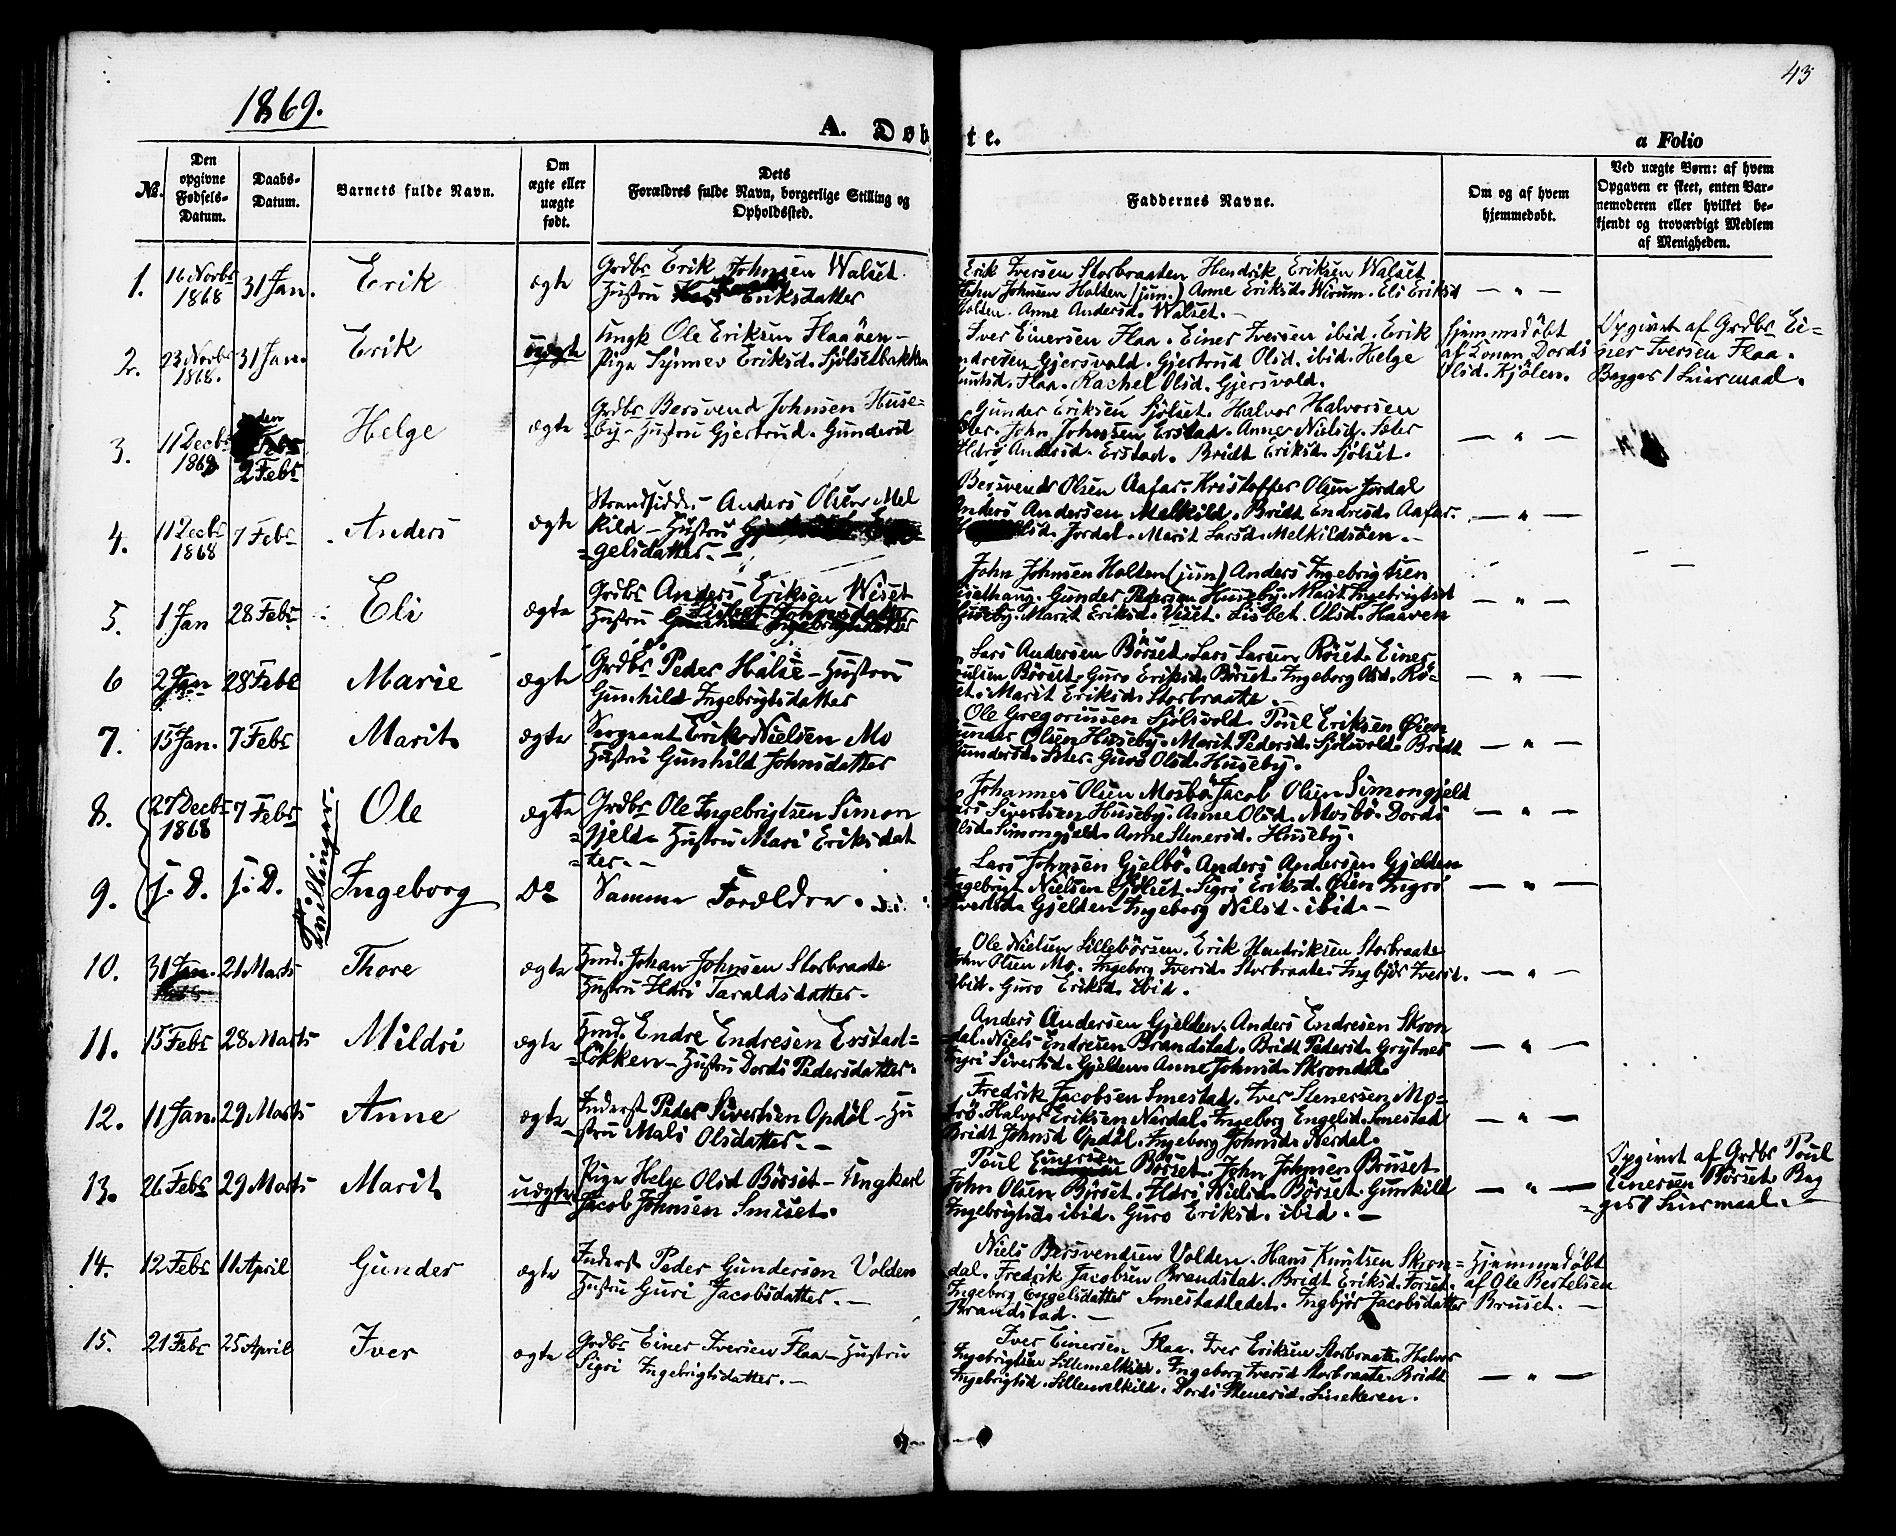 43
1869.
A. Døbte.
a Folio
No.
Den opgivne Fødsels-Datum.
Daabs-Datum.
Barnets fulde Navn.
Om ægte eller uægte født.
Dets Forældres fulde Navn, borgerlige Stilling og Opholdssted.
Faddernes Navne.
Om og af hvem hjemmedøbt.
Ved uægte Børn: af hvem Opgaven er skeet, enten Barnemoderen eller hvilket bekjendt og troværdigt Medlem af Menigheden.
1. 16 Novbr 1868 31 Jan. Erik ægte
Grdbr Erik Johnsen Walset
Hustru Eriksdatter
Erik Iversen Storbraaten Hendrik Eriksen Walset
John Johnsen Holten (jun.) Anne Eriksd. Wirum. Eli Eriksd
Holten. Anne Andersd. Walset. —
— " —
2. 23 Novbr 1868. 31 Jan. Erik uægte
Ungk Ole Eriksen Flaaøen —
Pige Synnev Eriksd. Sjølsetbakken
Iver Einersen Flaa. Einer Iversen ibid. Erik
Endresen Gjersvold. Gjertrud Olsd. ibid. Helge
Knutsd. Flaa. Rachel Olsd. Gjersvold.
Hjemmedøbt
af Konen Dordi
Olsd. Kjølen.
Opgivet af Grdbr Ei-
ner Iversen Flaa.
Begges 1 Leiermaal.
3. 11 Decbr 1868 den 2 Febr Helge ægte
Grdbr Bersvend Johnsen Huse-
by — Hustru Gjertrud Gundersd
Gunder Eriksen Sjølset. Halvor Halvorsen
Sæter. John Johnsen Erstad. Anne Nielsd. Sæter
Ildrø Andersd. Erstad. Bridt Eriksd. Sjølset.
— " —
4. 11 Decbr 1868 7 Febr Anders ægte
Strandsidd. — Anders Olsen Mel
kild — Hustru
=gelsdatter. —
Bersvend Olsen Aafar. Kristoffer Olsen Jordal
Anders Andersen Melkild. Bridt Endresd. Aafar.
Jordal. Marit Larsd. Melkildsøen. —
— " —
5. 1 Jan 28 Febr Eli ægte
Grdbr Anders Eriksen Wiset
Hustru Lisbet Johnsdatter
John Johnsen Holten (jun) Anders Ingebrigtsen
Gunder Pedersen Huseby. Marit Ingebrigtsd
Huseby. Marit Eriksd. Viset. Lisbet Olsd. Haaven
— " —
6 2 Jan 28 Febr Marie ægte
Grdbr Peder Halse — Hustru
Gunhild Ingebrigtsdatter
Lars Andersen Børset. Lars Larsen Røset. Einer
Poulsen Børset. Guro Eriksd. Børset. Ingeborg Olsd. Rø-
set. Marit Eriksd. Storbraate.
— " —
7. 15 Jan. 7 Febr Marit ægte
Sergeant Erik Nielsen Mo
Hustru Gunhild Johnsdatter
Ole Gregoriussen Sjølsvold. Poul Eriksen Øien
Gunder Olsen Huseby. Marit Pedersd. Sjølsvold. Bridt
Gundersd. Sæter. Guro Olsd. Huseby.
— " —
Tvillinger.
8. 27 Decbr 1868 7 Febr Ole ægte
Grdbr Ole Ingebrigtsen Simon
=gjeld. Hustru Mari Eriksdat
=ter. —
Johannes Olsen Mosbø Jacob Olsen Simongjeld
Lars Sivertsen Huseby. Anne Olsd. Mosbø. Dordi
Olsd. Simongjeld. Anne Stenersd. Huseby.
— " —
9. j. D. j. D. Ingeborg Do
Samme Forældre.
Lars Johnsen Gjelbø. Anders Andersen Gjelden
Ingebrigt Nielsen Sjølset. Sigri Eriksd. Øien Ingrø
Sivertsd. Gjelden Ingeborg Nielsd. ibid. —
— " —
10. 31 Jan. 21 Marts Thore ægte
Hmd. Johan Johnsen Storbraate
Hustru Ildri Taraldsdatter. —
Ole Nielsen Lillebørsen. Erik Hendriksen Storbraate
John Olsen Mo. Ingeborg Iversd. Storbraate. Ingbjør Iversd.
ibid. Guro Eriksd. ibid.
— " —
11. 15 Febr 28 Marts Mildri ægte
Hmd. Endre Endresen Erstad=
=løkken — Hustru Dordi Pedersdatter.
Anders Andersen Gjelden. Anders Endresen Skron
dal. Niels Endresen Brandstad. Bridt Pedersd. Grytnes
Ingri Sivertsd. Gjelden. Anne Johnsd. Skrondal.
— " —
12. 11 Jan. 29 Marts Anne ægte
Inderst Peder Sivertsen Opdøl — Hu
stru Mali Olsdatter. —
Fredrik Jacobsen Smestad. Iver Stenersen Mo-
Halvor Eriksen Nerdal. Ingeborg Engelsd. Smestad
Bridt Johnsd Opdøl. Ingeborg Johnsd. Nerdal.
— " —
13. 26 Febr 29 Marts Marit uægte
Pige Helge Olsd Børset — Ungkarl
Jacob Johnsen Smiset.
Poul Einersen Børset. John Johnsen Bruset.
John Olsen Børset. Ildri Nielsd. Børset. Gunhild
Ingebrigtsd. ibid. Guro Eriksd. ibid. —
— " —
Opgivet af Grdbr Poul
Einersen Børset. Beg
=ges 1 Leiermaal. —
14. 12 Febr 11 April Gunder ægte
Inderst Peder Gundersen Volden
Hustru Guri Jacobsdatter. —
Niels Bersvendsen Volden. Hans Knudsen Skron=
dal. Fredrik Jacobsen Brandstad. Bridt Eriksd. Forset.
Ingeborg Engelsdatter Smestadledet. Ingbjør Jacobsdatter
Brandstad. —
Hjemmedøbt
af Ole Bertelsen
Bruset. —
15. 21 Febr 25 April Iver ægte
Grdbr Einer Iversen Flaa — Hustru
Sigri Ingebrigtsdatter. —
Iver Einersen Flaa. Iver Eriksen Storbraate. Halvor
Ingebrigtsen Lillemelkild. Ingeborg Iversd Storbraate. Bridt
Ingebrigtsd. Lillemelkild. Dordi Stenersd.
— " —